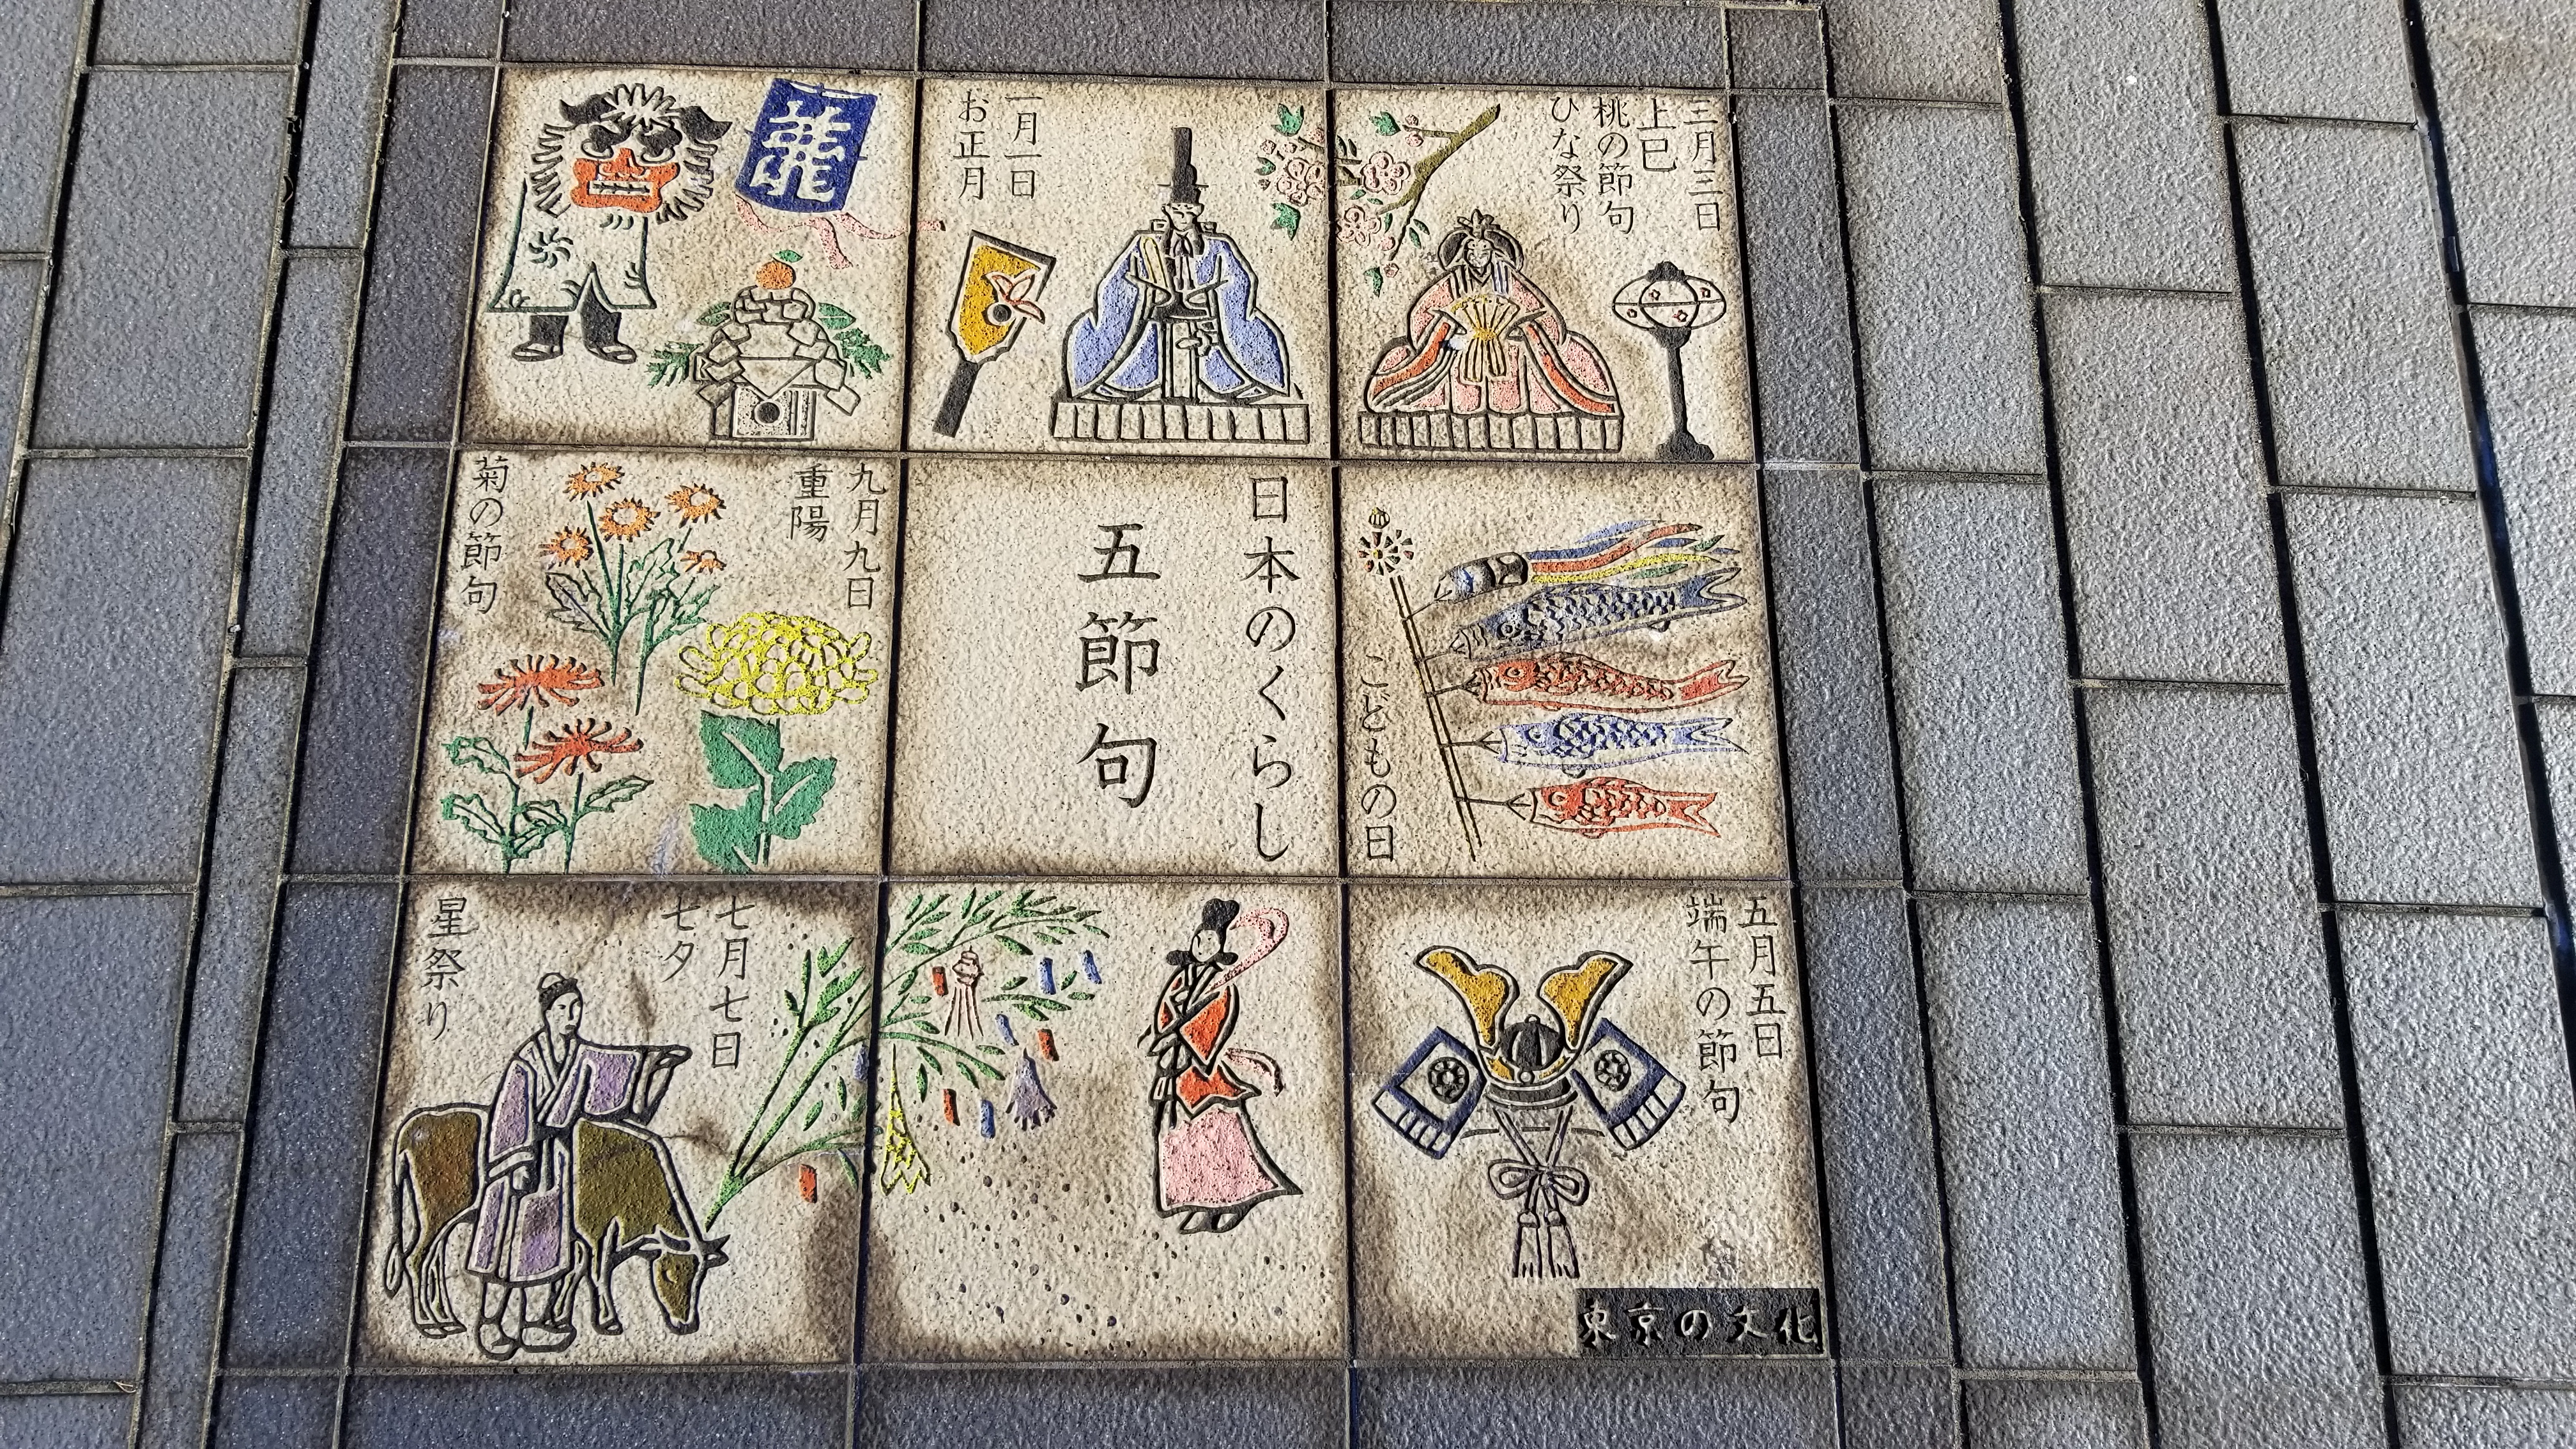 龍
一月一日
お正月
三月三日
上巳
桃の節句
ひな祭り
九月九日
重陽
菊の節句
日本のくらし
五節句
こどもの日
七月七日
七夕
星祭り
五月五日
端午の節句
東京の文化